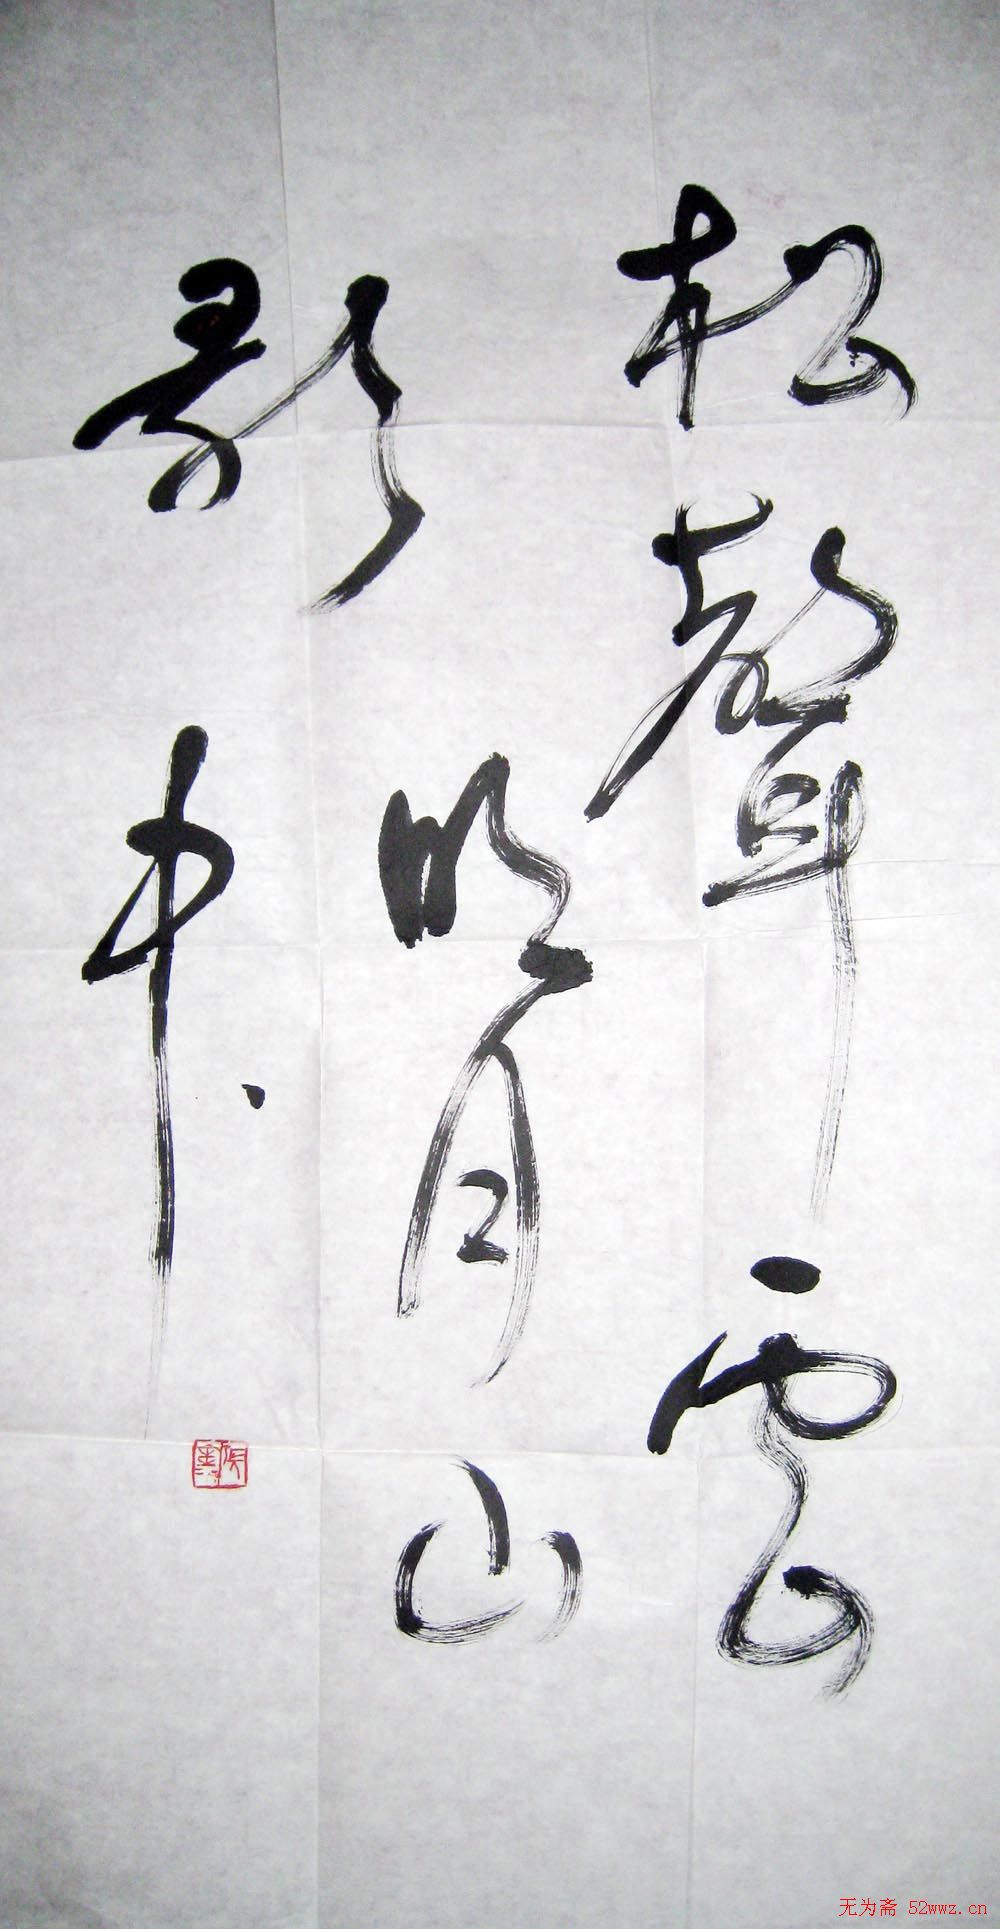 松聲雲
明月山
影中
无为斋 52wwz.cn